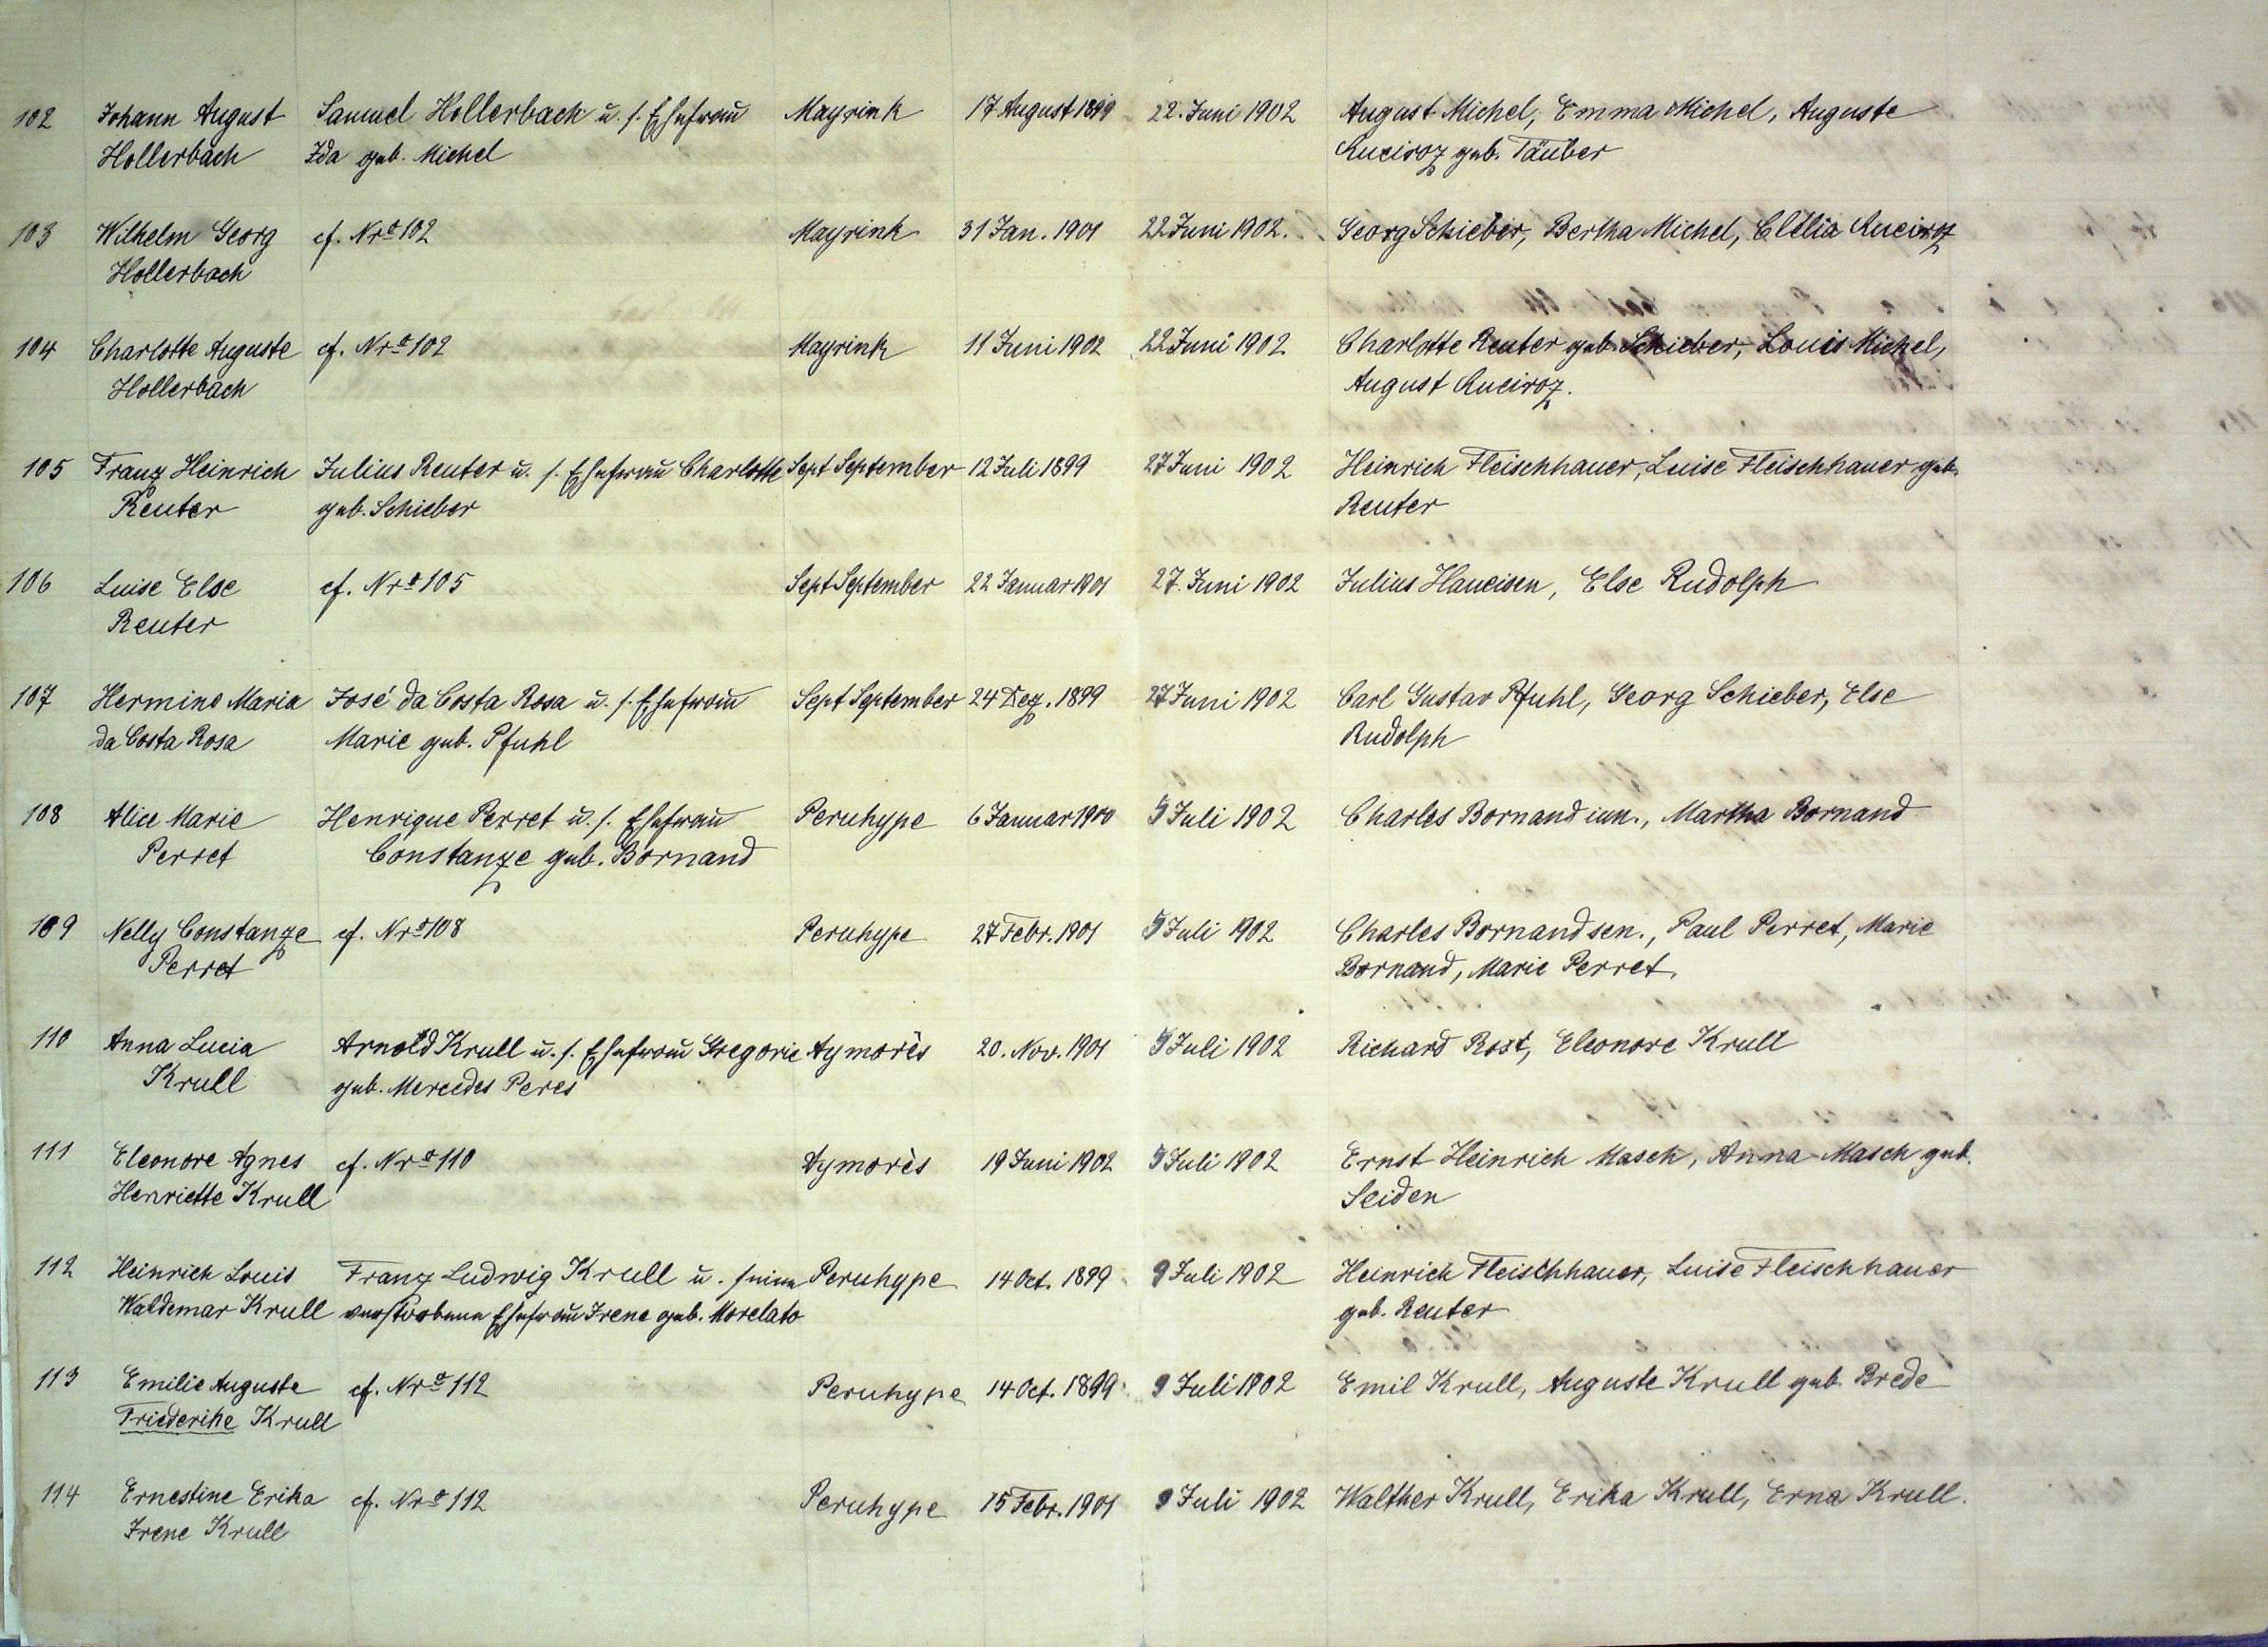 102 Johann August Samuel Hollerbach u. s. Ehefrau Mayrink 17 August 1899 22. Juni 1902 August Michel, Emma Michel, Auguste
Hollerbach Ida geb. Michel Queiroz geb. Täuber
103 Wilhelm Georg cf. Nro 102 Mayrink 31 Jan. 1901 22 Juni 1902. Georg Schieber, Bertha Michel, Clélia Queiroz
Hollerbach
104 Charlotte Auguste cf. Nro 102 Mayrink 11 Juni 1902 22 Juni 1902 Charlotte Reuter geb. Schieber, Louis Michel,
Hollerbach August Queiroz.
105 Franz Heinrich Julius Reuter u. s. Ehefrau Charlotte Sept September 12 Juli 1899 27 Juni 1902 Heinrich Fleischhauer, Luise Fleischhauer geb.
Reuter geb. Schieber Reuter
106 Luise Else cf. Nro 105 Sept September 22 Januar 1901 27. Juni 1902 Julius Haueisen, Else Rudolph
Reuter
107 Hermine Maria José da Costa Rosa u. s. Ehefrau Sept September 24 Dez. 1899 27 Juni 1902 Carl Gustav Pfuhl, Georg Schieber, Else
da Costa Rosa Marie geb. Pfuhl Rudolph
108 Alice Marie Henrique Perret u. s. Ehefrau Peruhype 6 Januar 1900 5 Juli 1902 Charles Bornand iun., Martha Bornand
Perret Constanze geb. Bornand
109 Nelly Constanze cf. Nro 108 Peruhype 27 Febr. 1901 5 Juli 1902 Charles Bornand sen., Paul Perret, Marie
Perret Bornand, Marie Perret.
110 Anna Lucia Arnold Krull u. s. Ehefrau Gregorie Aymorès 20. Nov. 1901 5 Juli 1902 Richard Rost, Eleonore Krull
Krull geb. Mercedes Peres
111 Eleonore Agnes cf. Nro 110 Aymorès 19 Juni 1902 5 Juli 1902 Ernst Heinrich Masch, Anna Masch geb.
Henriette Krull Seiden
112 Heinrich Louis Franz Ludwig Krull u. seine Peruhype 14 Oct. 1899 9 Juli 1902 Heinrich Fleischhauer, Luise Fleischhauer
Waldemar Krull verstorbene Ehefrau Irene geb. Morelato geb. Reuter
113 Emilie Auguste cf. Nro 112 Peruhype 14 Oct. 1899 9 Juli 1902 Emil Krull, Auguste Krull geb. Brede
Friederike Krull
114 Ernestine Erika cf. Nro 112 Peruhype 15 Febr. 1901 9 Juli 1902 Walther Krull, Erika Krull, Erna Krull.
Irene Krull